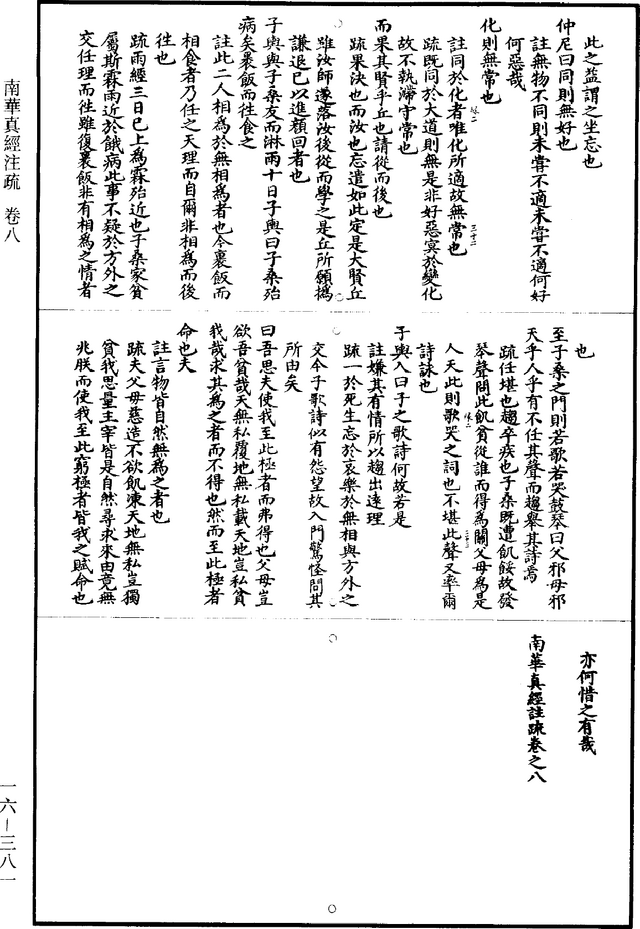 此之益謂之坐忘也
仲尼曰同則無好也
註無物不同則未嘗不適未嘗不適何好
何惡哉
化則無常也
註同於化者唯化所適故無常也
疏既同於大道則無是非好惡冥於變化
故不執滯守常也
而果其賢乎丘也請從而後也
疏果決也而汝也忘遣如此定是大賢丘
雖汝師遂落汝後從而學之是丘所願撝
謙退己以進顏回者也
子輿與子桑友而淋雨十日子輿曰子桑殆
病矣裹飯而往食之
註此二人相為於無相為者也今裹飯而
相食者乃任之天理而自爾非相為而後
往也
疏雨經三日已上為霖殆近也子桑家貧
屬斯霖雨近於餓病此事不疑於方外之
交任理而往雖復裹飯非有相為之情者
也
至子桑之門則若歌若哭鼓琴曰父邪母邪
天乎人乎有不任其聲而趨舉其詩焉
疏任堪也趨卒疾也子桑既遭飢餒故發
琴聲問此飢貧從誰而得為關父母為是
人天此則歌哭之詞也不堪此聲又率爾
詩詠也
子輿入曰子之歌詩何故若是
註嫌其有情所以趨出遠理
疏一於死生忘於哀樂於無相與方外之
交今子歌詩似有怨望故入門驚怪問其
所由矣
曰吾思夫使我至此極者而弗得也父母豈
欲吾貧哉天無私覆地無私載天地豈私貧
我哉求其為之者而不得也然而至此極者
命也夫
註言物皆自然無為之者也
疏夫父母慈造不欲飢凍天地無私豈獨
貧我思量主宰皆是自然尋求來由竟無
兆朕而使我至此窮極者皆我之賦命也
亦何惜之有哉
南華真經註疏卷之八
南華真經注疏 卷八
一六—三八一